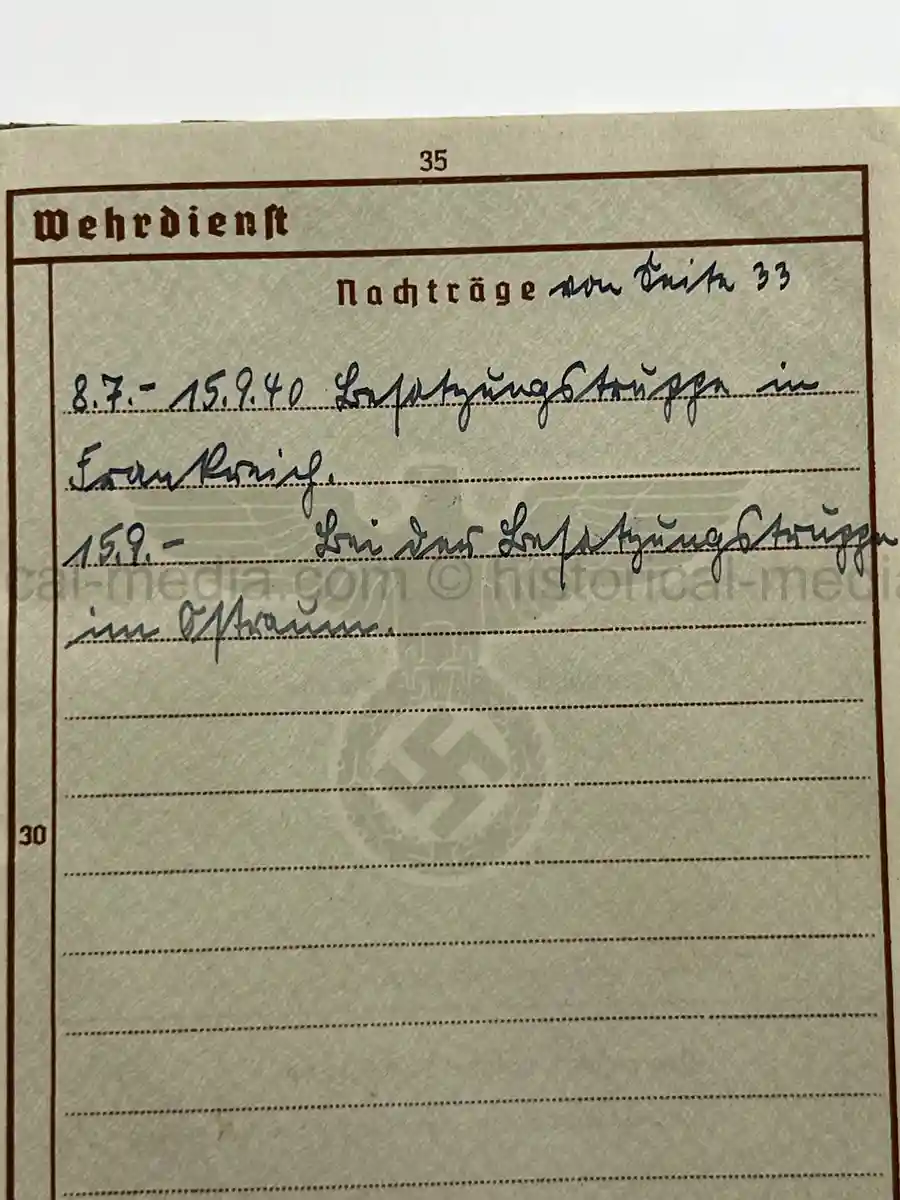 35
Wehrdienst
Nachträge von Seite 33
8.7.- 15.9.40 Besatzungstruppe in
Frankreich.
15.9.- Bei der Besatzungstruppe
im Ostraum.
cal-media.com © historical-media
30